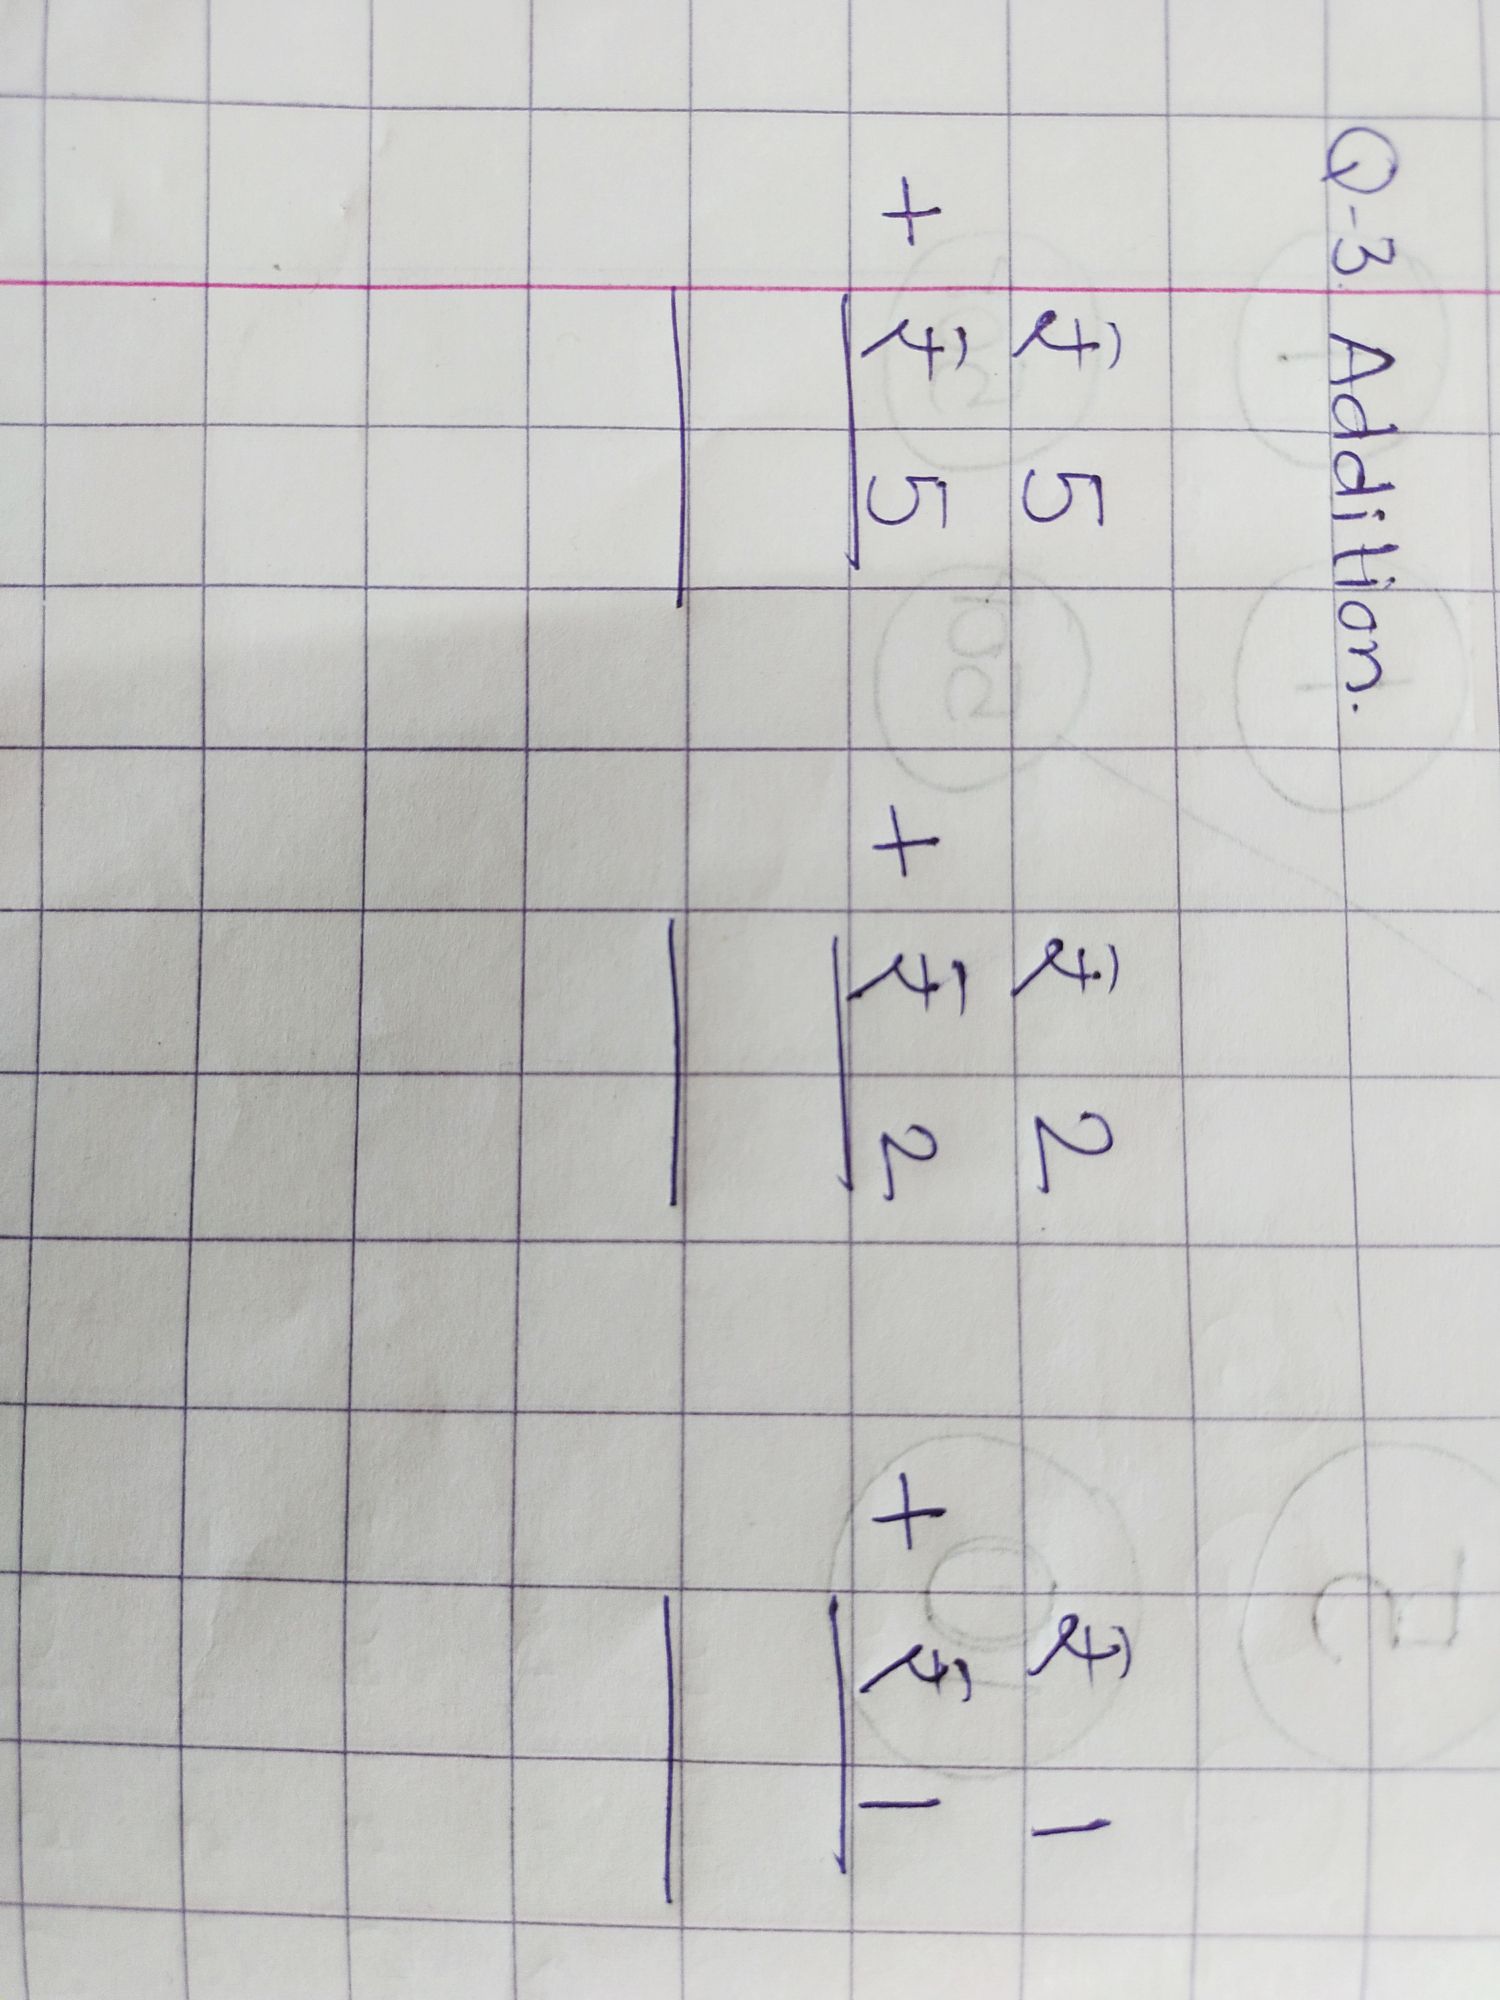 Q-3. Addition.
₹ 5 ₹ 2 ₹ 1
+ ₹ 5 + ₹ 2 + ₹ 1